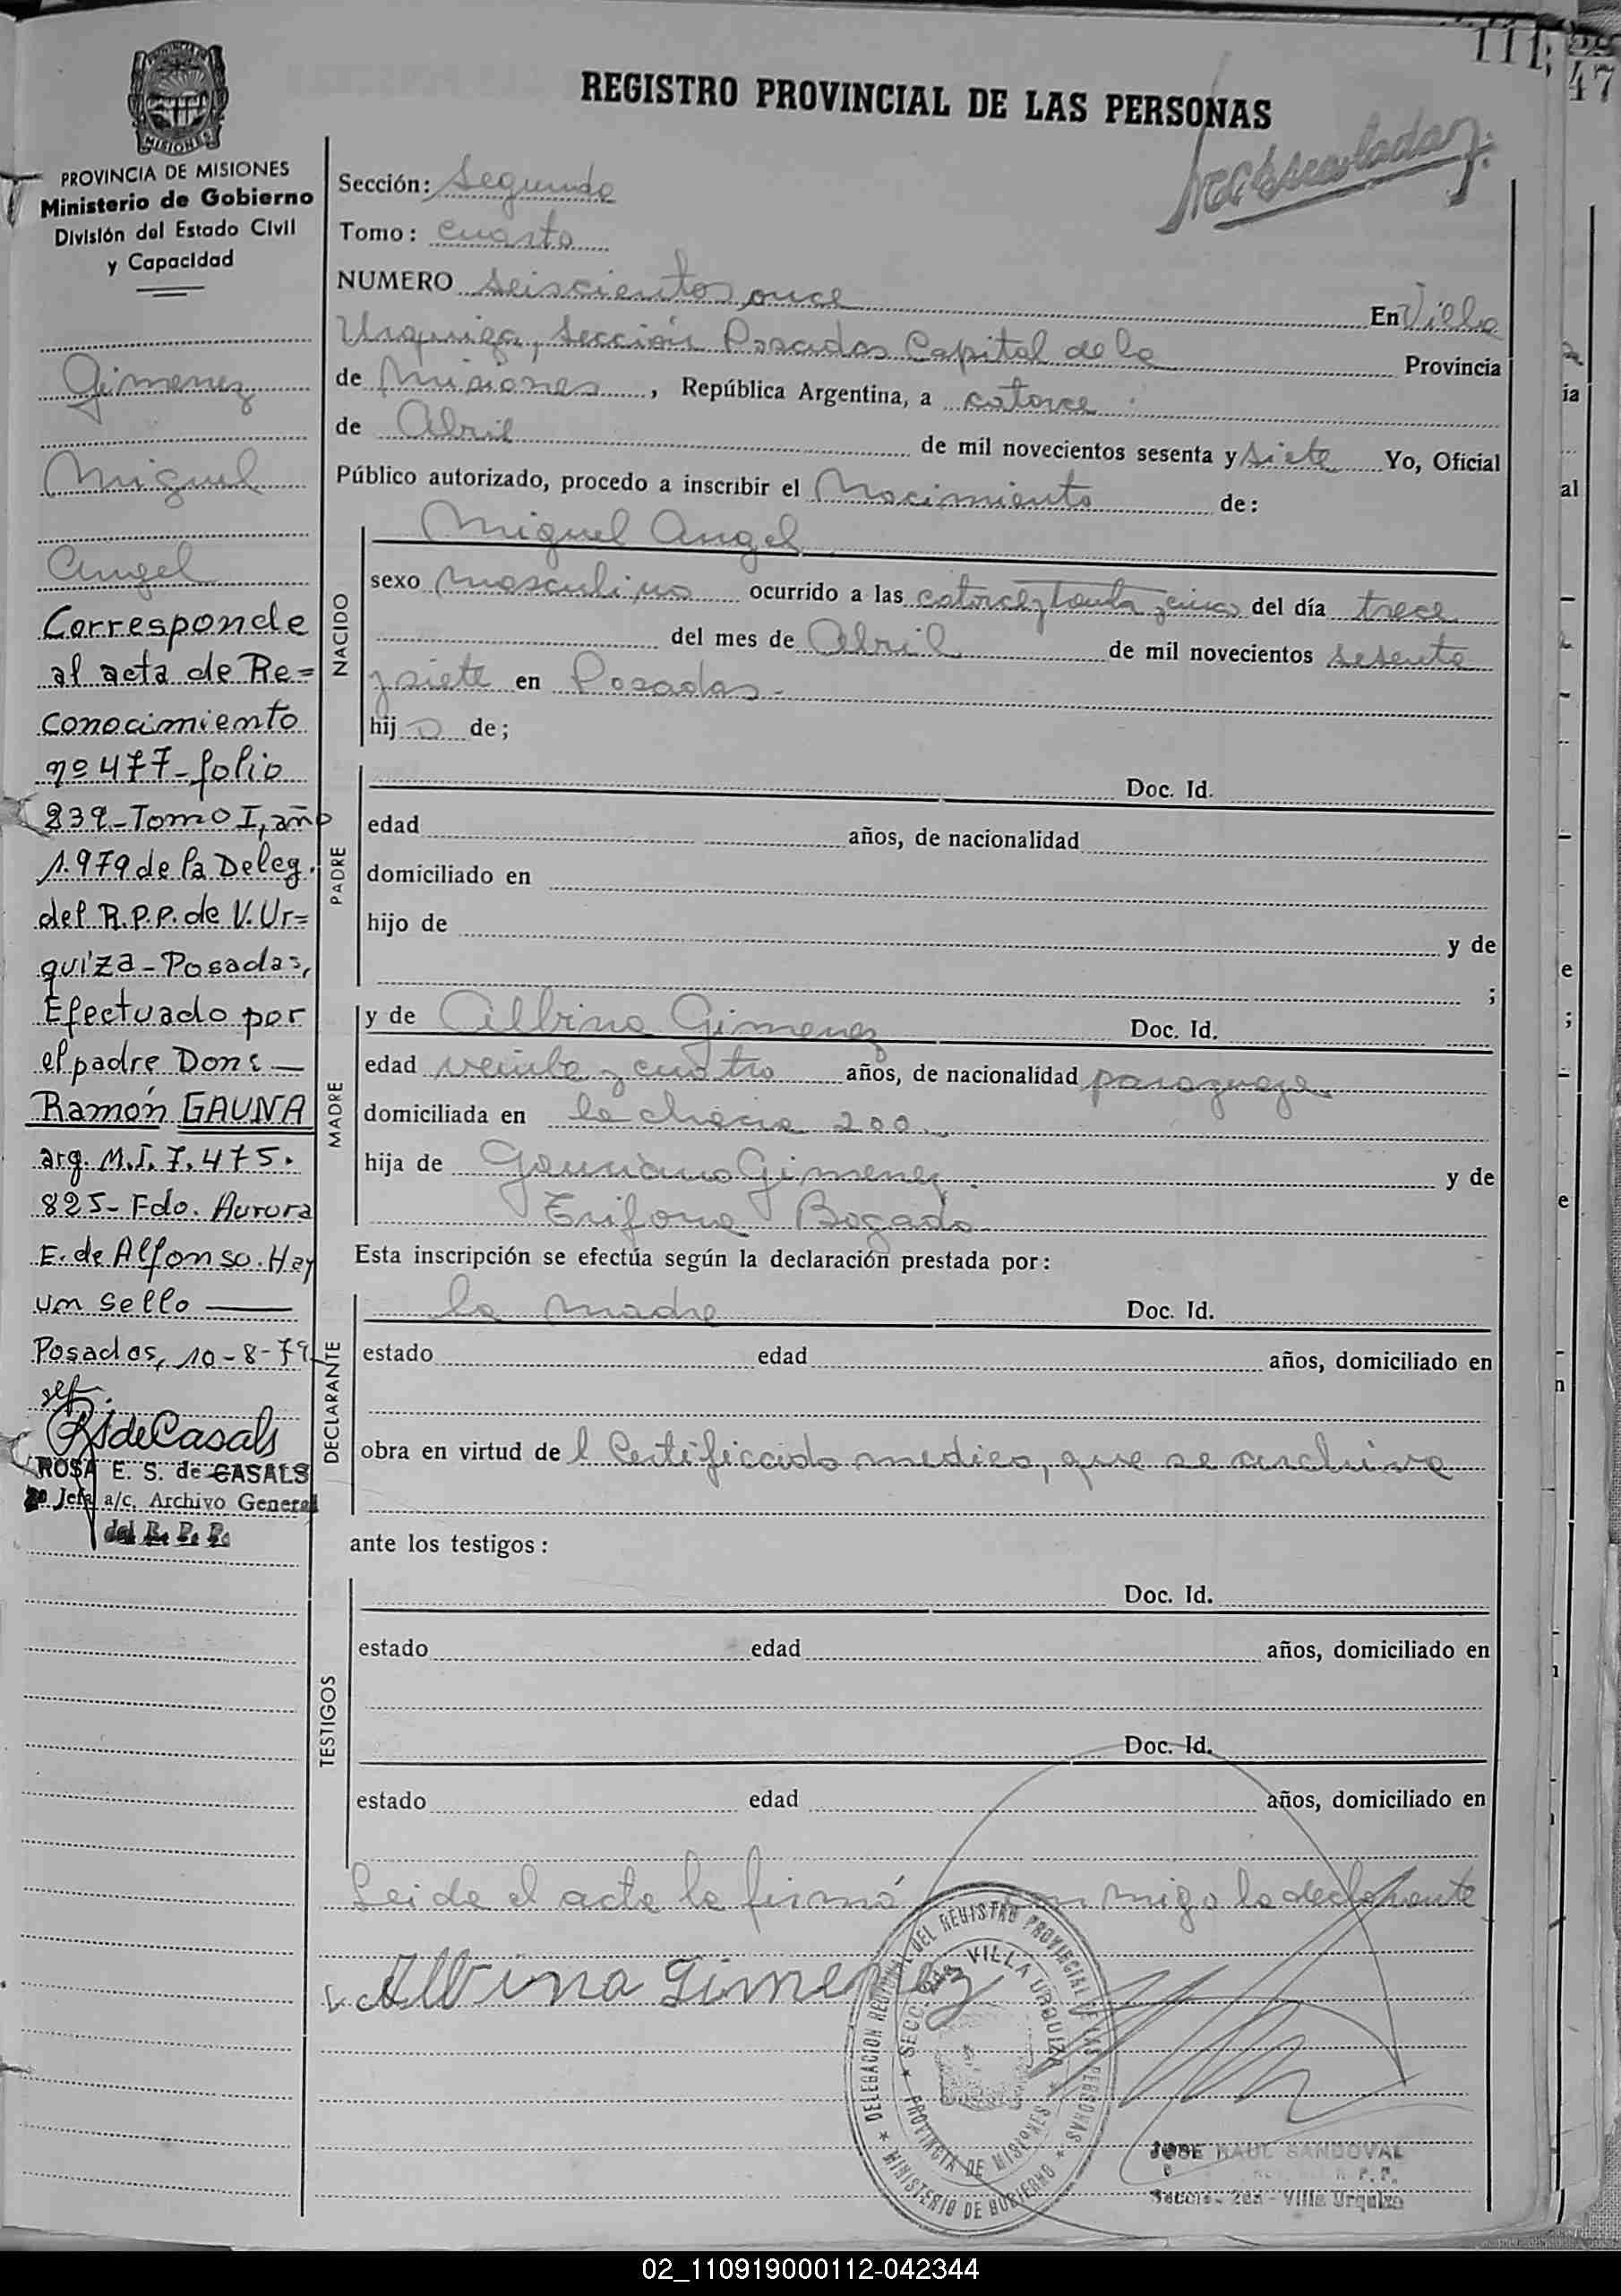 111;
47
REGISTRO PROVINCIAL DE LAS PERSONAS
MISIONES
PROVINCIA DE MISIONES
Ministerio de Gobierno
División del Estado Civil
y Capacidad
Sección: Segunda
Tomo: Cuarto
NUMERO seiscientos once En Villa
Urquiza, Sección Posadas Capital de la Provincia
de Misiones, República Argentina, a catorce
de Abril de mil novecientos sesenta y siete Yo, Oficial
Público autorizado, procedo a inscribir el Nacimiento de:
Gimenez
Miguel
Angel
Corresponde
al acta de Re=
conocimiento
nº 477-folio
239-Tomo I, año
1.979 de la Deleg.
del R.P.P. de V. Ur=
quiza-Posadas,
Efectuado por
el padre Don: —
Ramón GAUNA
arg. M.I. 7.475.
825- Fdo. Aurora
E. de Alfonso. Hay
un sello ——
Posadas, 10-8-79
RSdeCasals
ROSA E. S. de CASALS
Jefa a/c. Archivo General
del R. P. P.
NACIDO
Miguel Angel
sexo masculino ocurrido a las catorce y treinta y cinco del día trece
del mes de Abril de mil novecientos sesenta
y siete en Posadas.-
hijo de;
PADRE
Doc. Id.
edad años, de nacionalidad
domiciliado en
hijo de y de
;
MADRE
y de Albina Gimenez Doc. Id.
edad veinte y cuatro años, de nacionalidad paraguaya
domiciliada en la chacra 200.-
hija de Gimenez y de
Trifona Bogado
Esta inscripción se efectúa según la declaración prestada por:
DECLARANTE
la madre Doc. Id.
estado edad años, domiciliado en
obra en virtud de l Certificado medico, que se archiva
ante los testigos:
TESTIGOS
Doc. Id.
estado edad años, domiciliado en
Doc. Id.
estado edad años, domiciliado en
Leida el acta la firmó conmigo la declarante
Albina Gimenez
DELEGACION REGIONAL DEL REGISTRO PROVINCIAL DE LAS PERSONAS ★ MINISTERIO DE GOBIERNO ★
SECC. 2da VILLA URQUIZA ★ PROVINCIA DE MISIONES ★
JOSE RAUL SANDOVAL
Seccion 2da - Villa Urquiza
02_110919000112-042344